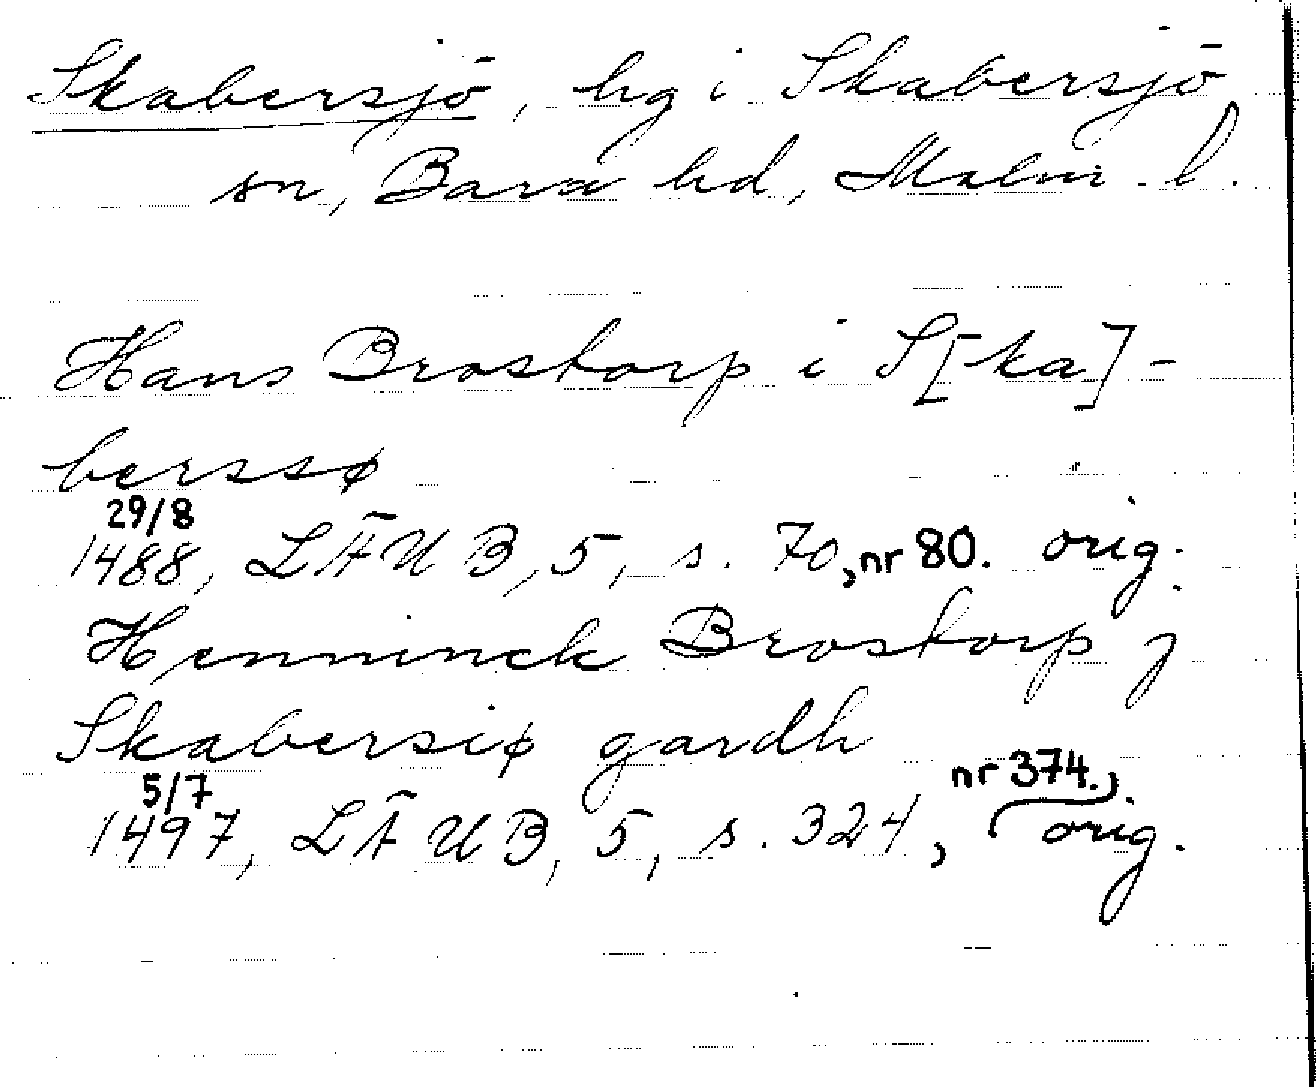 Skabersjö, hg i Skabersjö
sn, Bara hd, Malm. l.
Hans Brostorp i S[ka]-
berssø
29/8
1488, LÄUB, 5, s. 70, nr 80. orig.
Henninck Brostorp j
Skabersiø gardh
5/7
nr 374.,
1497, LÄUB, 5, s. 324, orig.